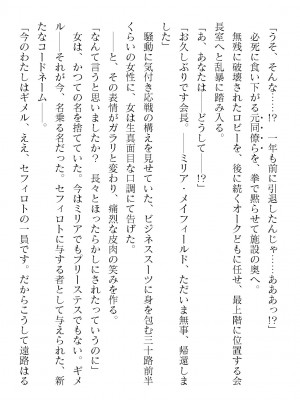 「うそ、そんな……!? 一年も前に引退したんじゃ……あああっ!?」
必死に食い下がる元同僚らを、拳で黙らせて施設の奥へ。
無残に破壊されたロビーを、後に続くオークどもに任せ、最上階に位置する会
長室へと乱暴に踏み入る。
「あ、あなたは――どうして――!?」
「お久しぶりです会長。――ミリア・メイフィールド、ただいま無事、帰還しま
した」
騒動に気付き応戦の構えを見せていた、ビジネススーツに身を包む三十路前半
くらいの女性に、女は生真面目な口調にて告げた。
――と、その表情がガラリと変わり、痛烈な皮肉の笑みを作る。
「なんて言うと思いましたか? 長々とほったらかしにされたっていうのに」
女は、かつての名を捨てていた。今はミリアでもプリーステスでもない。ギメ
ル――それが今、名乗る名だった。セフィロトに与する者として与えられた、新
たなコードネーム――。
「今のわたしはギメル、ええ、セフィロトの一員です。だからこうして遠路はる